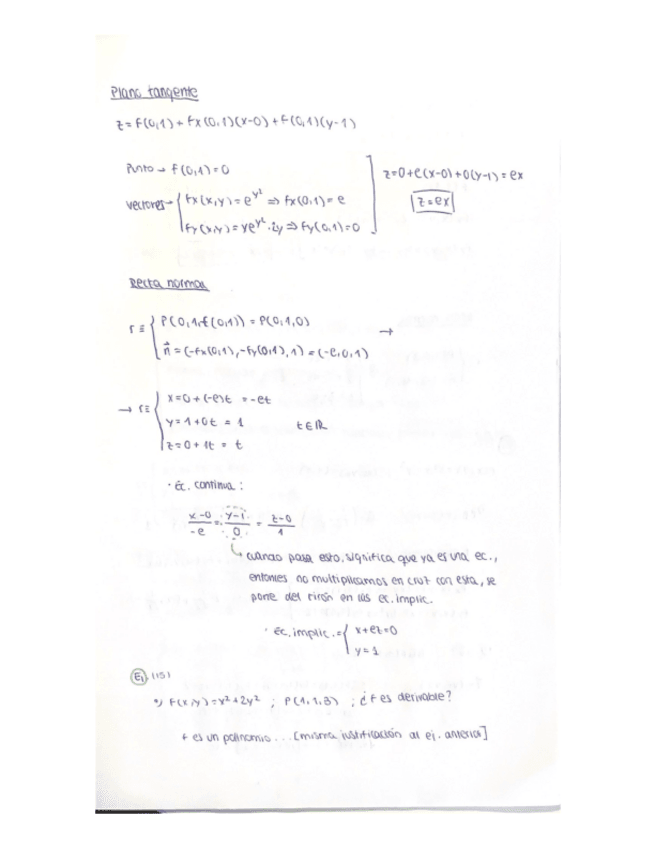 Plano tangente
z = f(0,1) + fx(0,1)(x-0) + f(0,1)(y-1)
Punto → f(0,1) = 0
vectores → { fx(x,y) = e^y² ⇒ fx(0,1) = e
fy(x,y) = xe^y² · 2y ⇒ fy(0,1) = 0
] z = 0 + e(x-0) + 0(y-1) = ex
z = ex
Recta normal
r ≡ { P(0,1,f(0,1)) = P(0,1,0) →
n⃗ = (-fx(0,1), -fy(0,1), 1) = (-e,0,1)
→ r ≡ { x = 0 + (-e)t = -et
y = 1 + 0t = 1 t ∈ ℝ
z = 0 + 1t = t
· Ec. continua :
x-0/-e = y-1/0 = z-0/1
cuando pasa esto, significa que ya es una ec.,
entonces no multiplicamos en cruz con esta, se
pone del tirón en las ec. implic.
· Ec. implic. = { x + ez = 0
y = 1
E1 (15)
a) f(x,y) = x² + 2y² ; P(1,1,3) ; ¿f es derivable?
f es un polinomio ... [misma justificación al ej. anterior]